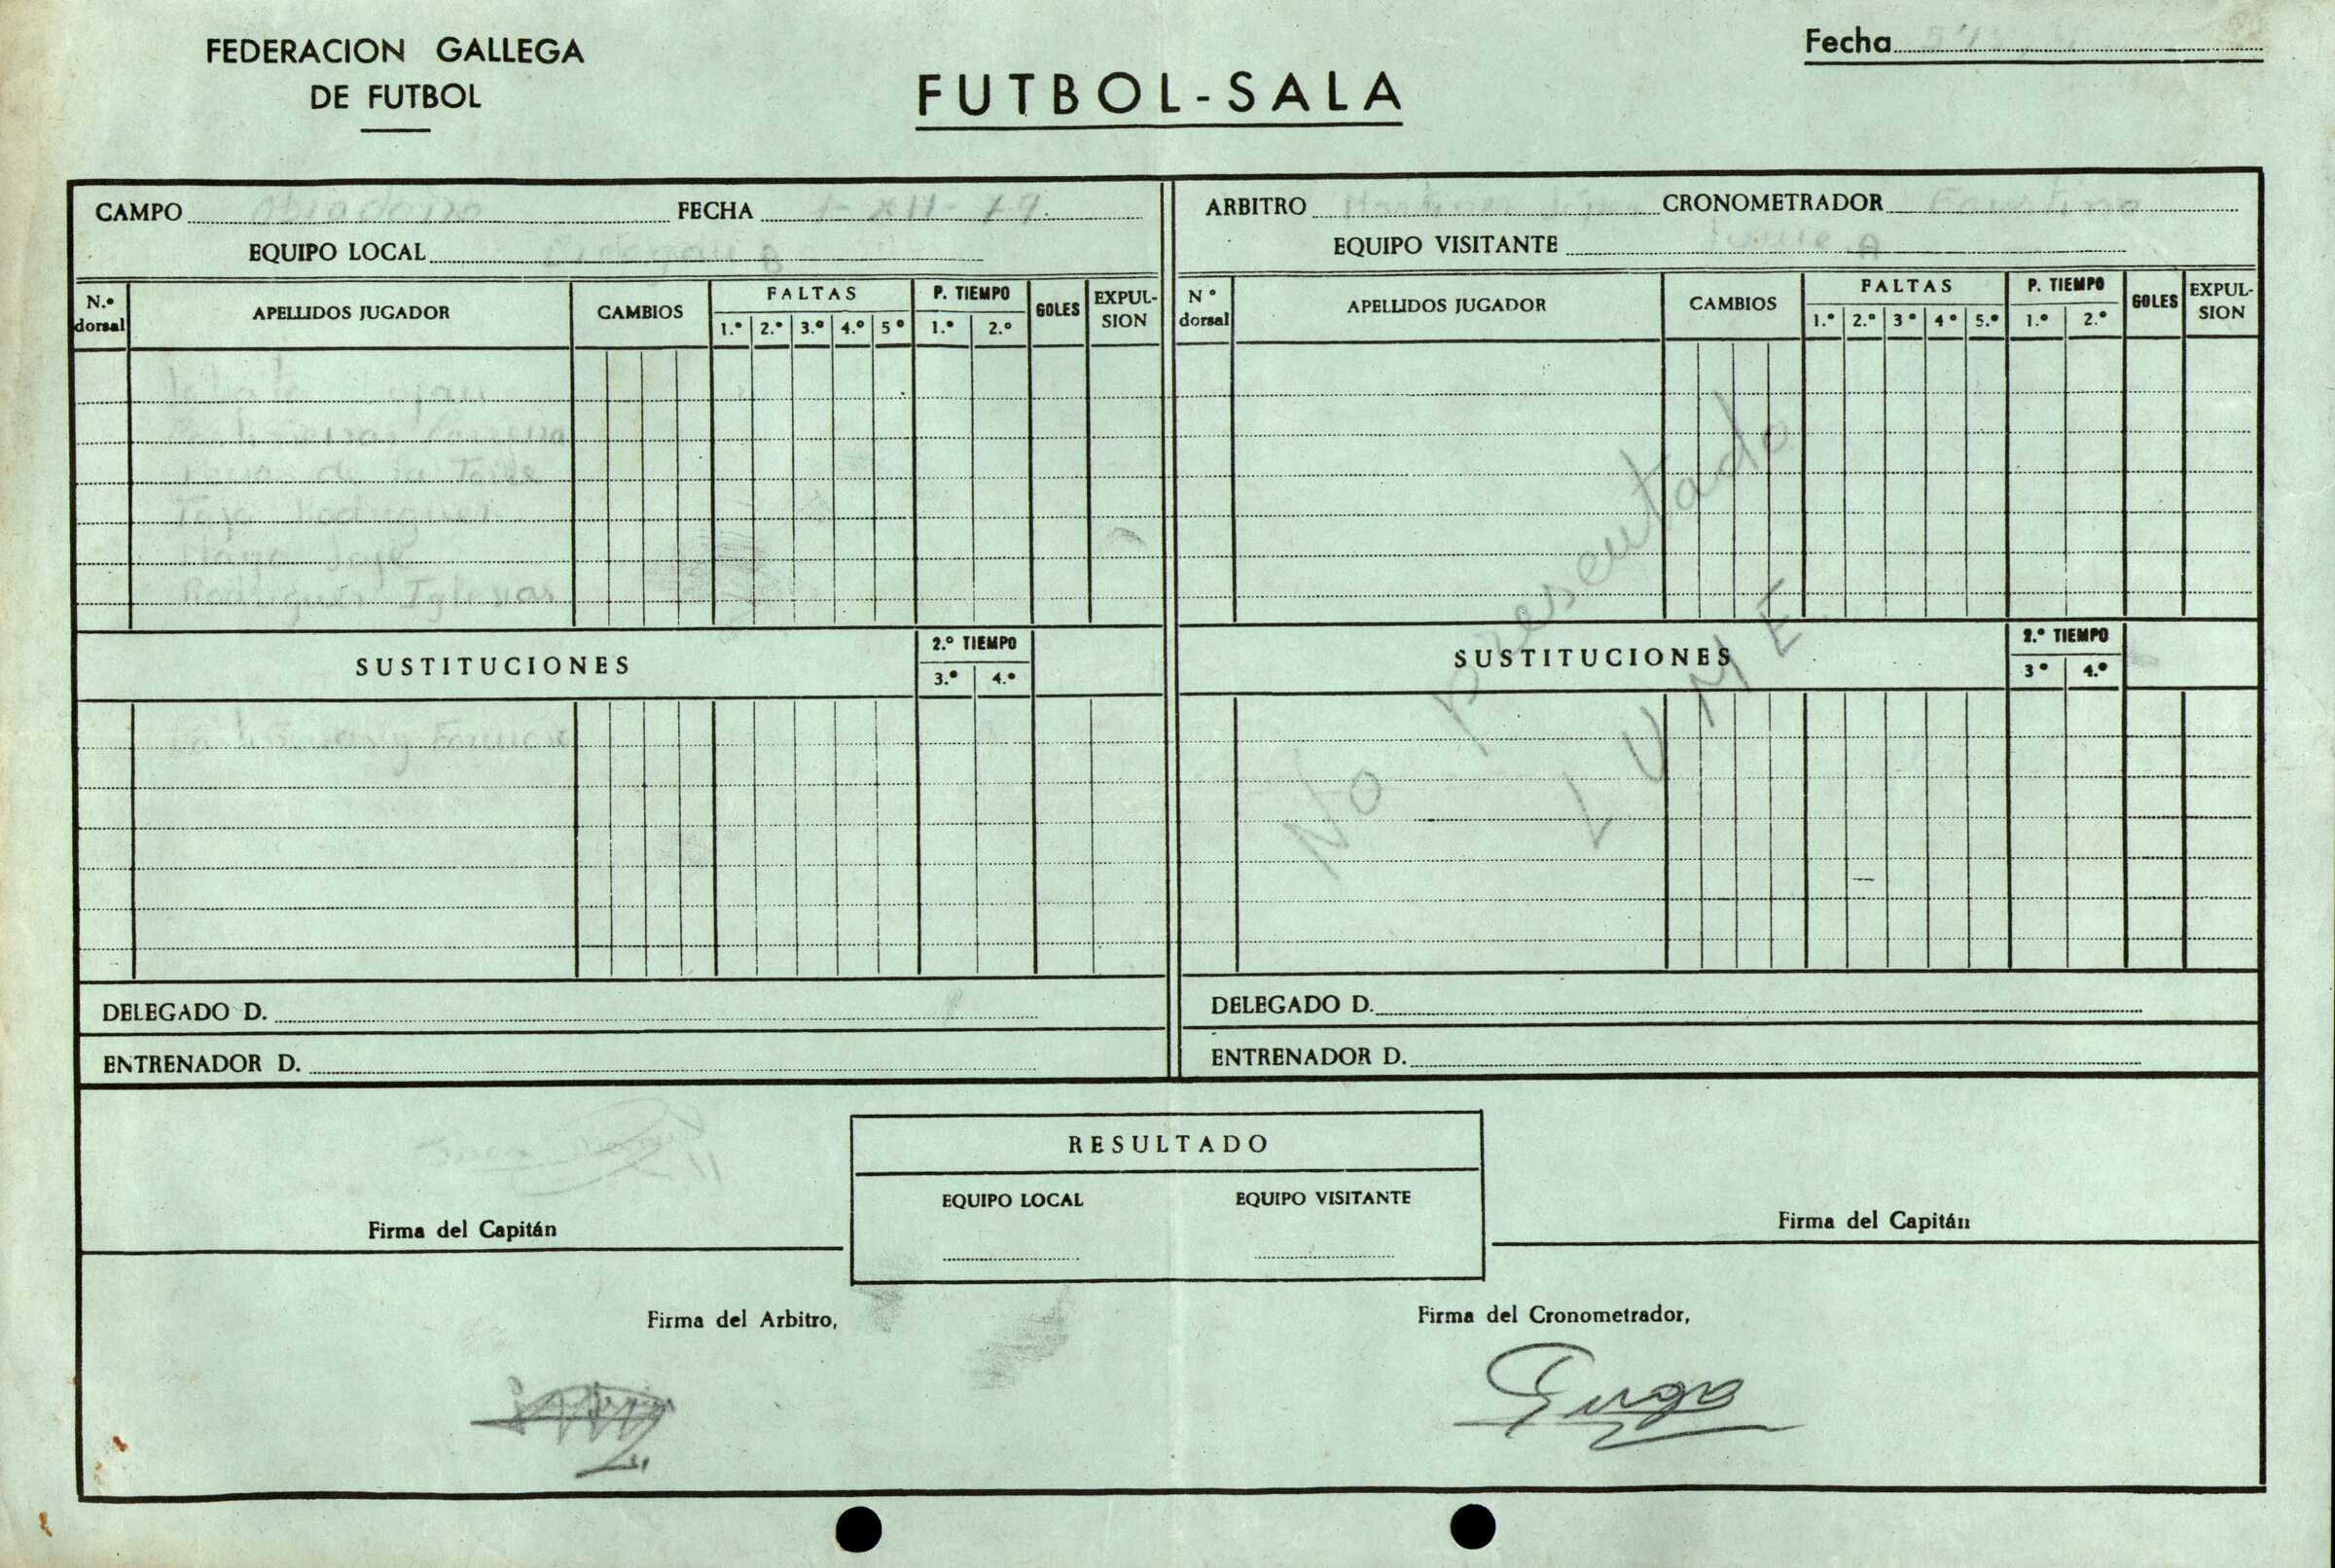 FEDERACION GALLEGA
DE FUTBOL
FUTBOL-SALA
Fecha
CAMPO Obradoiro FECHA 1-XII-79
EQUIPO LOCAL B
ARBITRO CRONOMETRADOR Faustino
EQUIPO VISITANTE Lume A
N.º dorsal APELLIDOS JUGADOR CAMBIOS FALTAS P. TIEMPO GOLES EXPULSION
1.º 2.º 3.º 4.º 5º 1.º 2.º
Nº dorsal APELLIDOS JUGADOR CAMBIOS FALTAS P. TIEMPO GOLES EXPULSION
1.º 2.º 3º 4º 5.º 1.º 2.º
de la Torre
Tojo Rodriguez
Rodriguez Iglesias
No presentado
LUME
SUSTITUCIONES 2.º TIEMPO
3.º 4.º
SUSTITUCIONES 2.º TIEMPO
3º 4.º
DELEGADO D.
ENTRENADOR D.
DELEGADO D.
ENTRENADOR D.
RESULTADO
EQUIPO LOCAL EQUIPO VISITANTE
Firma del Capitán
Firma del Capitán
Firma del Arbitro,
Firma del Cronometrador,